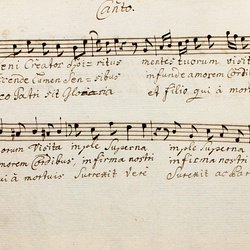 Canto.
eni Creator Spiritus mentes tuorum visit
cende lumen Sensibus infunde amorem Cord
eo Patri sit Gloria et filio qui à mort
orum Visita imple Superna imple Superna
morem Cordibus, infirma nostri infirma nostri
ui à mortuis Surrexit Vere Surrexit ac